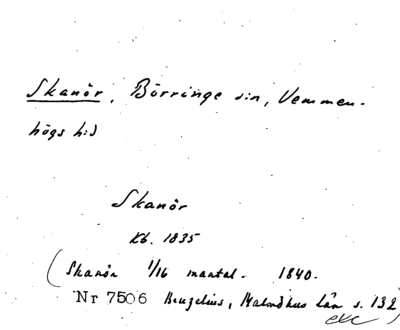 Skanör, Börringe sn, Vemmen-
högs hd
Skanör
Kb. 1835
(Skanör 1/16 mantal. 1840.
Nr 7506 Kruzelius, Malmöhus län s. 132)